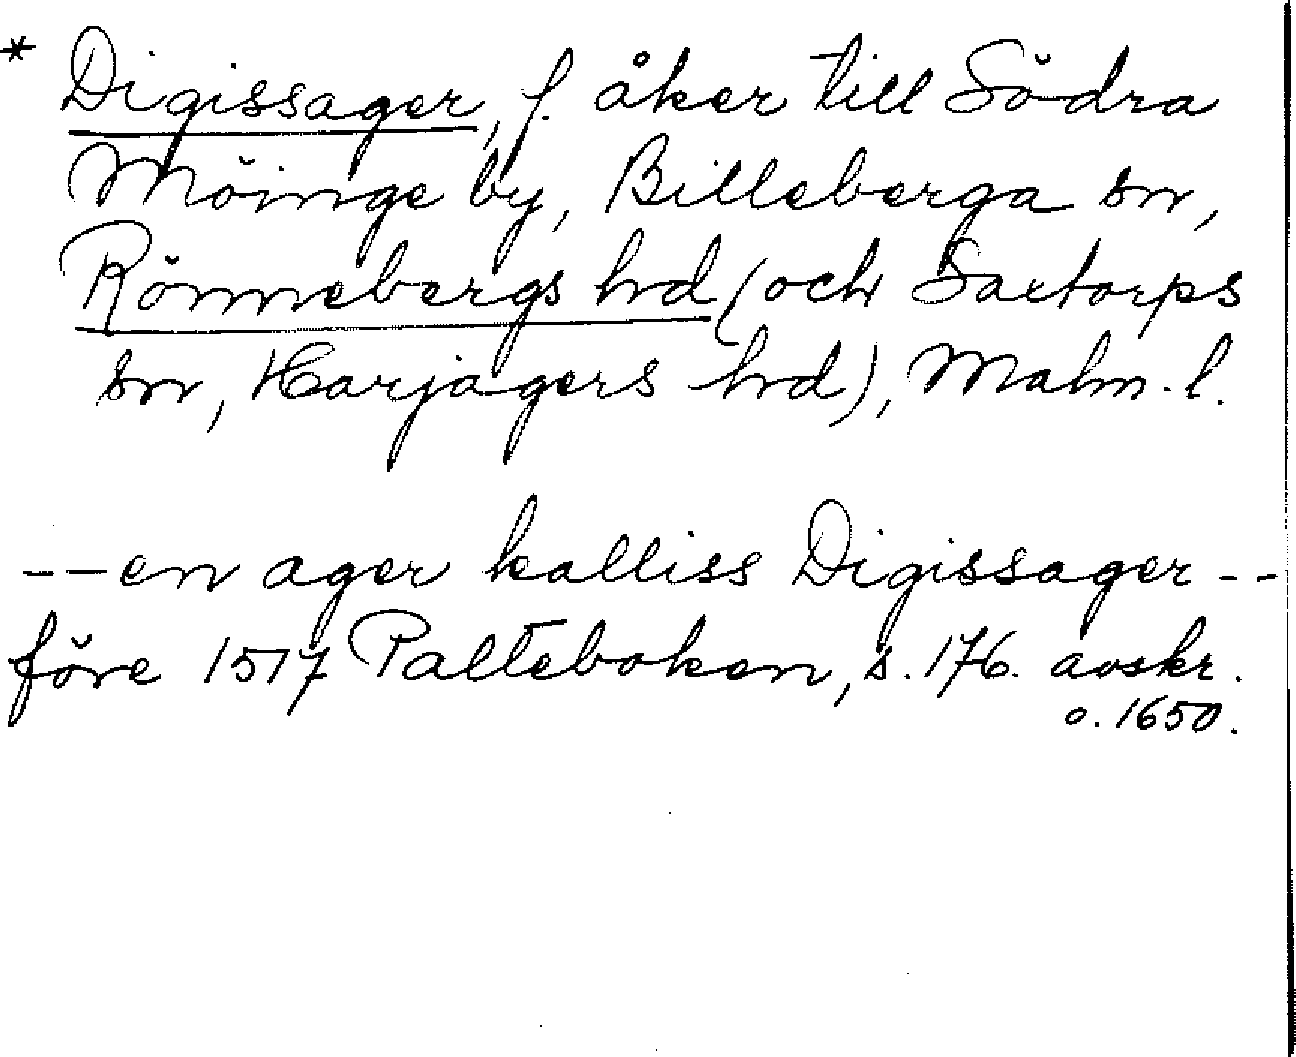 * Digissager, f. åker till Södra
Möinge by, Billeberga sn,
Rönnebergs hrd (och Saxtorps
sn, Harjagers hrd), Malm. l.
-- en ager kalliss Digissager --
före 1517 Palteboken, s. 176. avskr.
o. 1650.